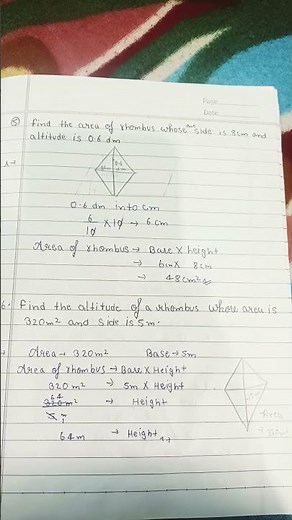 Page:
Date:
5 Find the area of rhombus whose and side is 8cm and
altitude is 0.6 dm
0.6 dm into cm
6/10 × 10 → 6 cm
Area of rhombus → Base × height
→ 6cm × 8cm
→ 48cm²
6. Find the altitude of a rhombus whose area is
320m² and side is 5m.
Area → 320m² Base → 5m
Area of rhombus → Base × Height
320 m² → 5m × Height
64
320m² → Height
5 1
64m → Height